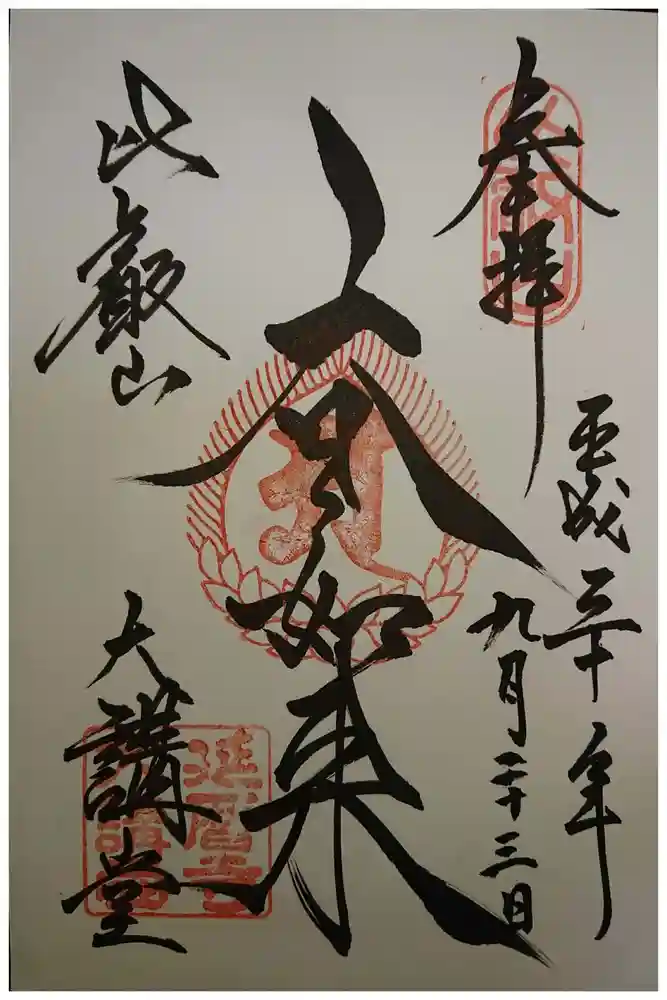 奉拝
平成三十年
九月二十三日
大日如来
比叡山
大講堂